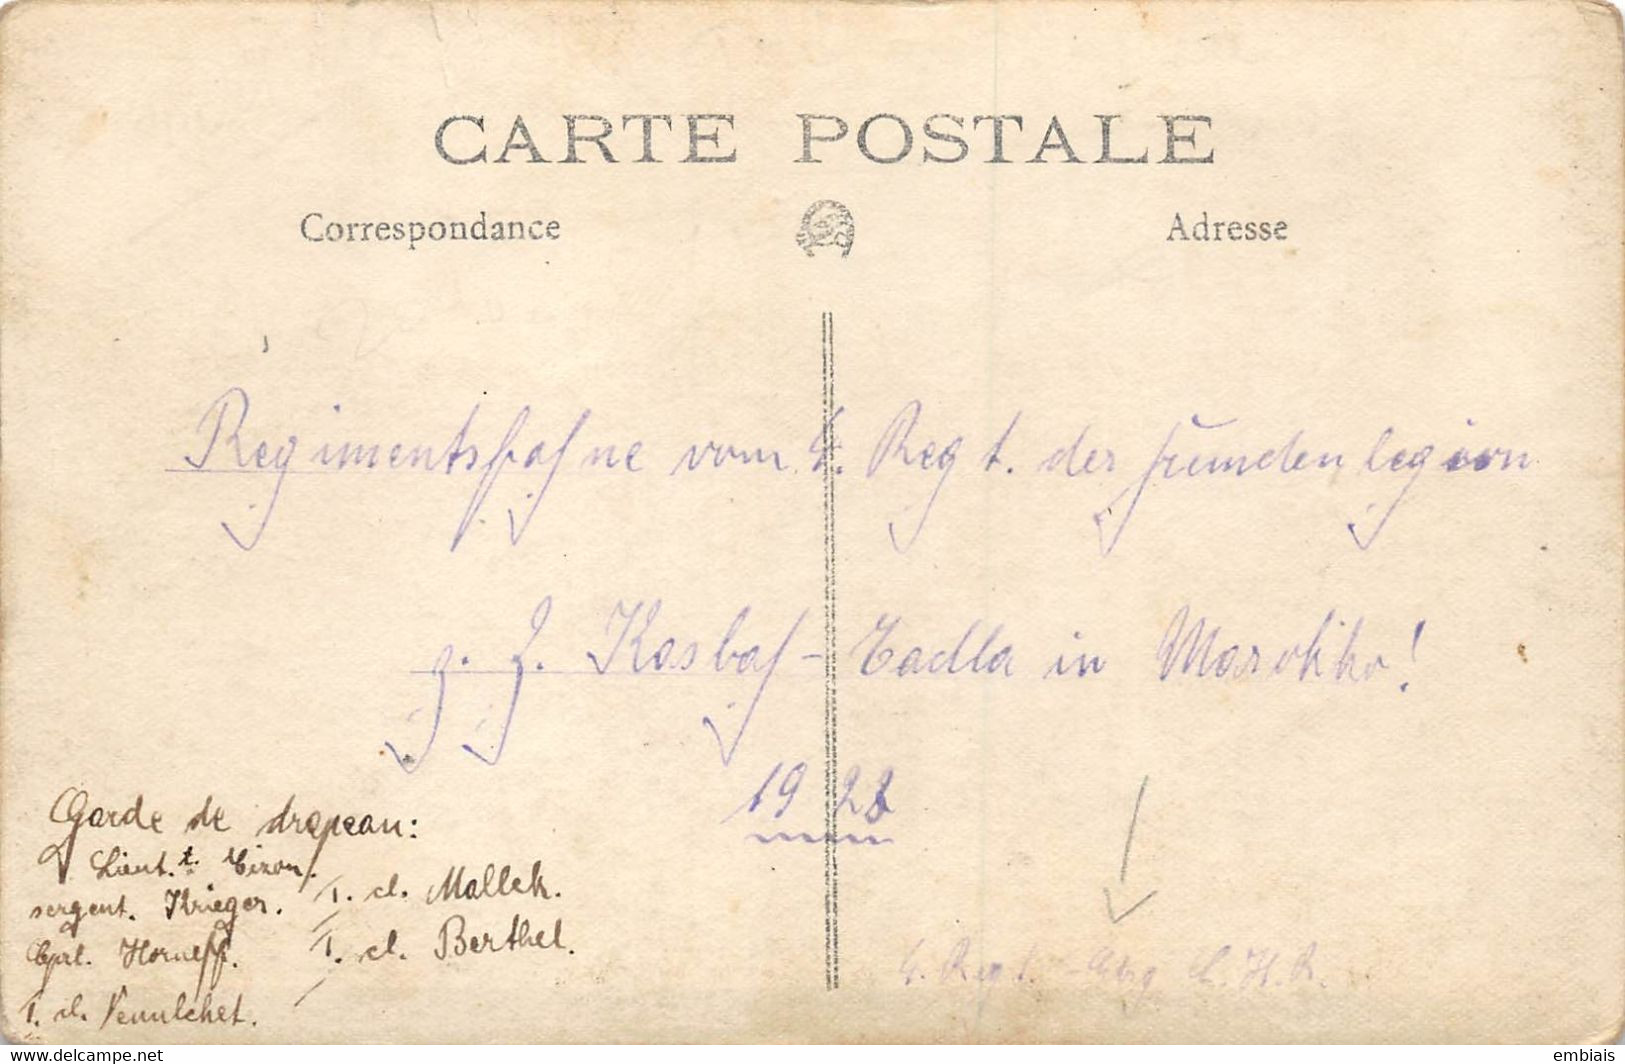 CARTE POSTALE
Correspondance
Adresse
Regimentsfahne vom 4. Regt. der Fremdenlegion
z. Z. Kasbah-Tadla in Marokko!
1922
Garde de drapeau:
Lieut.t.
sergent. Krieger.
Cprl. Horneff.
1. cl.
1. cl. Mallek.
1. cl. Berthel.
4. Regt. C. H. R.
delcampe.net
embiais